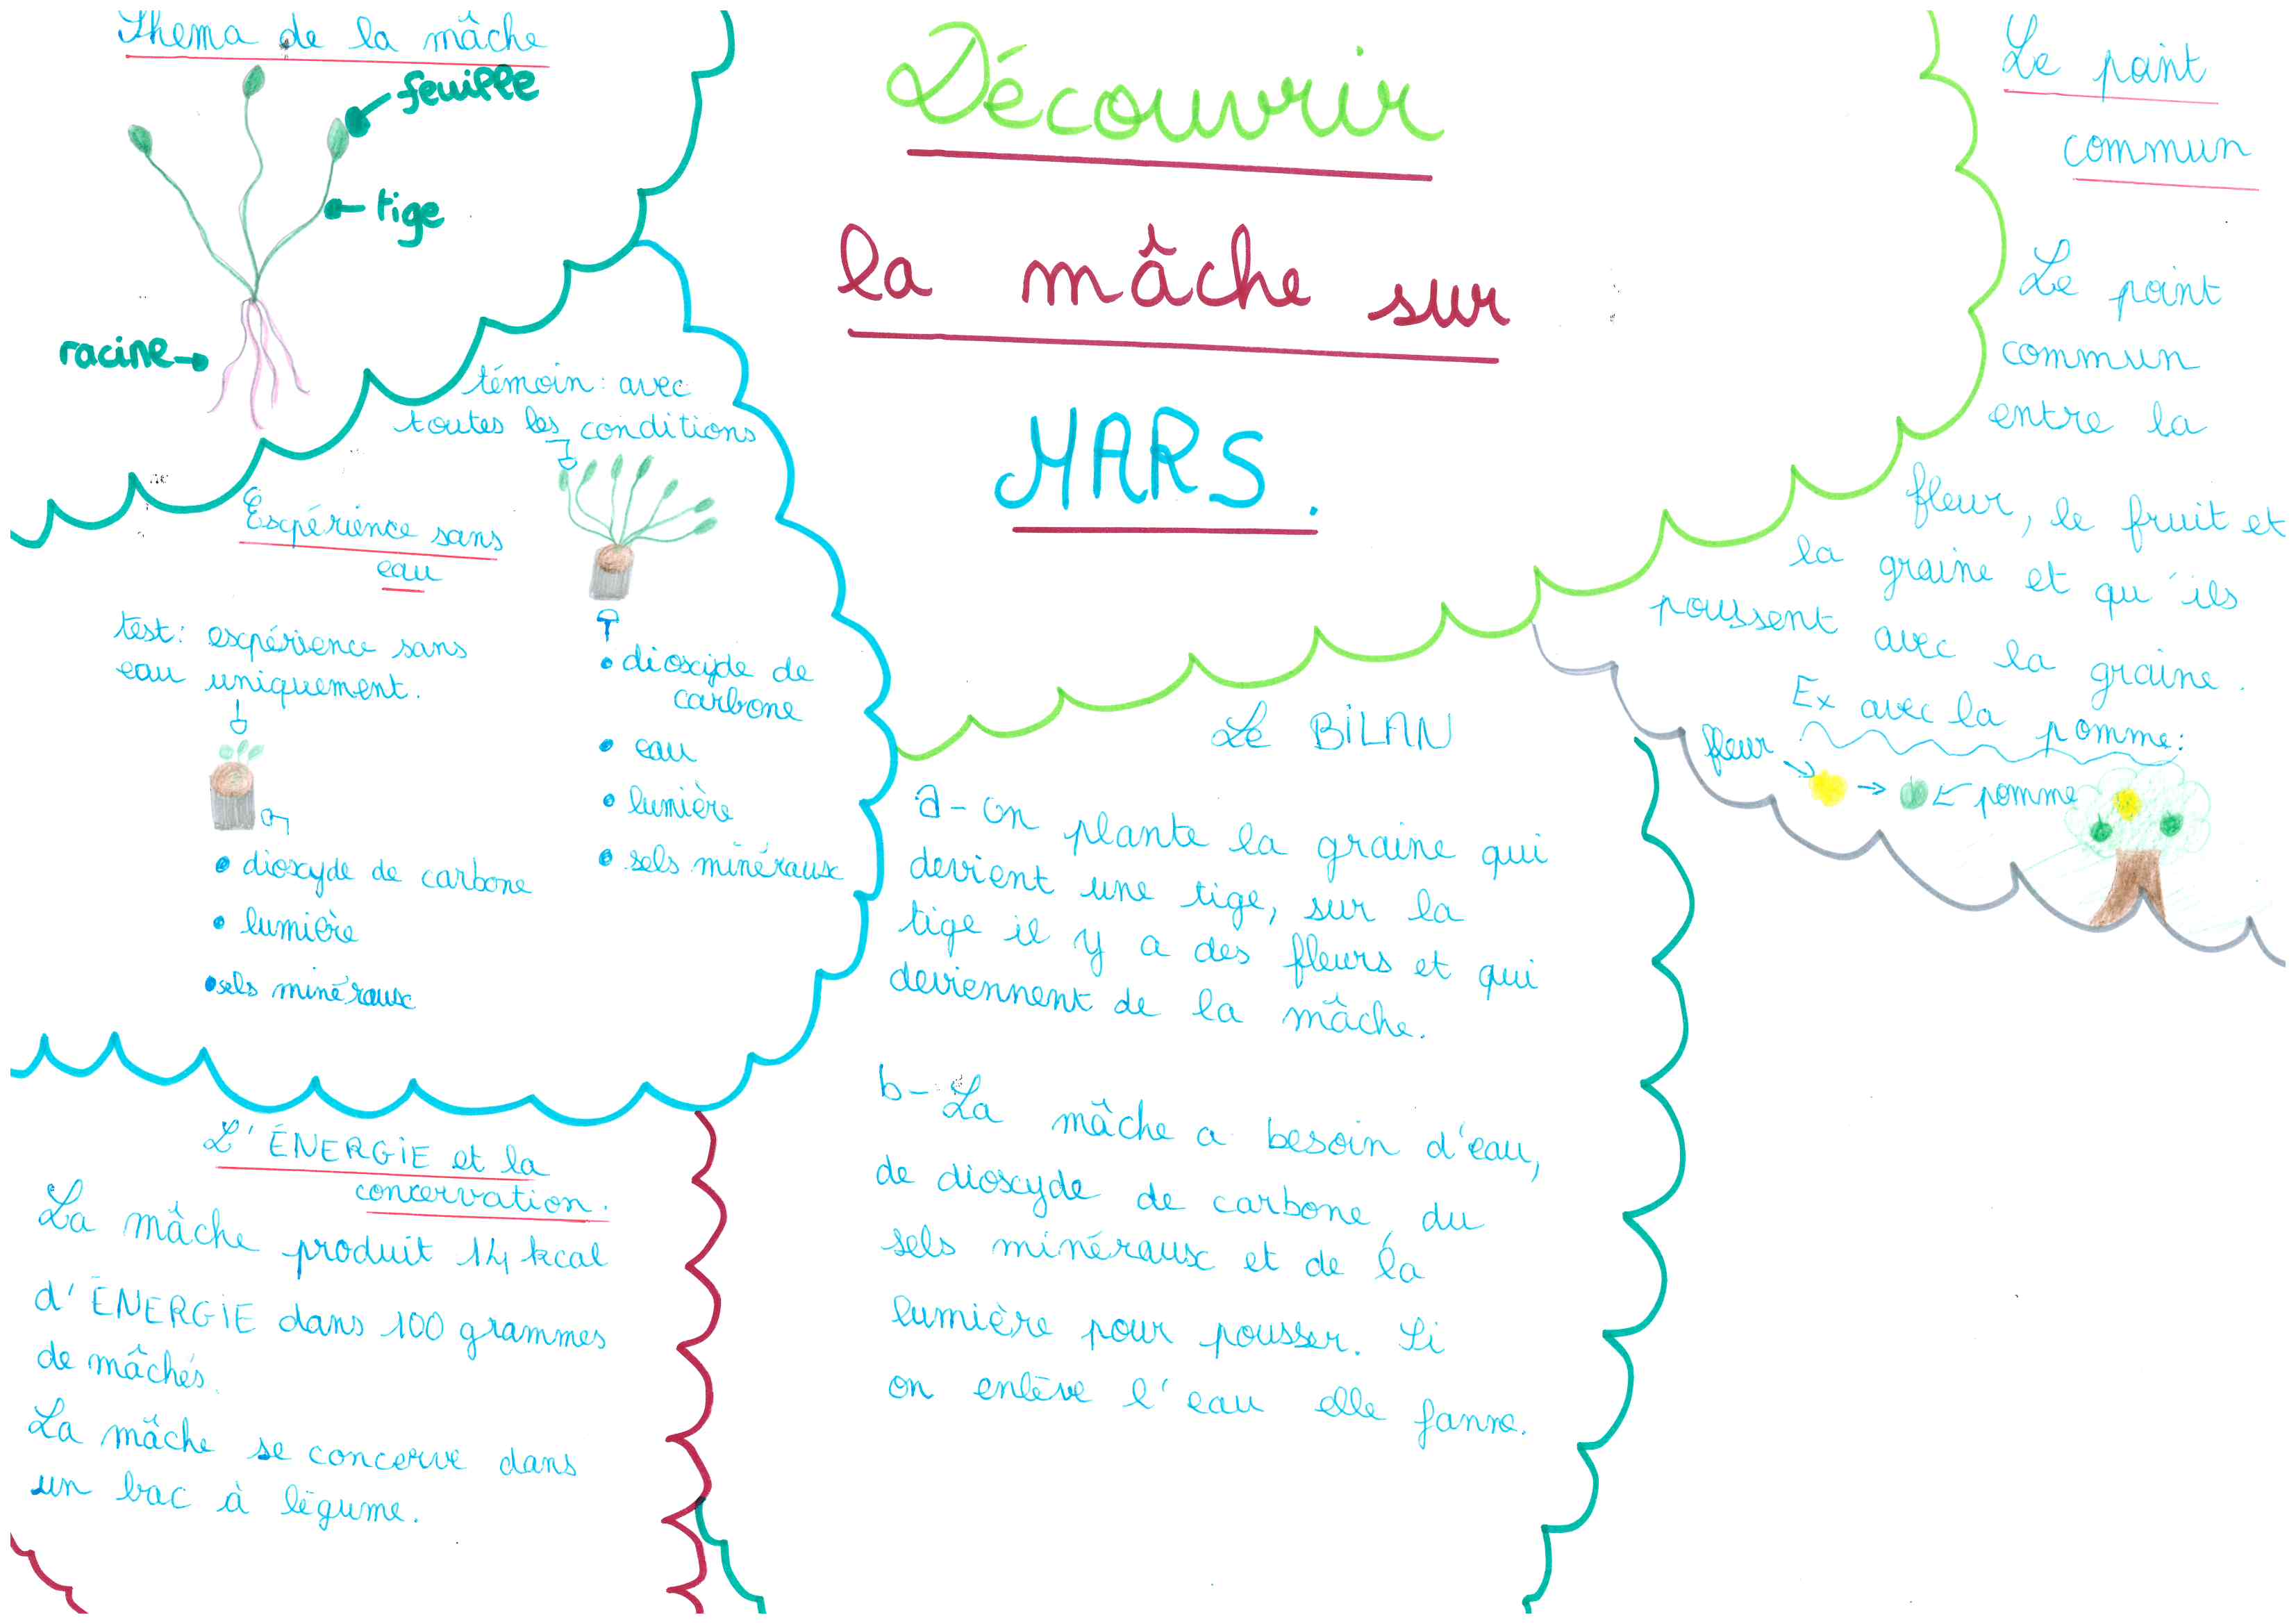 Découvrir
la mâche sur
MARS.
Shema de la mâche
feuille
tige
racine
témoin: avec
toutes les conditions
Expérience sans
eau
test: expérience sans
eau uniquement.
• dioxyde de carbone
• lumière
• sels minéraux
• dioxyde de
carbone
• eau
• lumière
• sels minéraux
L'ÉNERGIE et la
concervation.
La mâche produit 14 kcal
d'ÉNERGIE dans 100 grammes
de mâchés.
La mâche se concerve dans
un bac à légume.
Le BILAN
a- on plante la graine qui
devient une tige, sur la
tige il y a des fleurs et qui
deviennent de la mâche.
b- La mâche a besoin d'eau,
de dioxyde de carbone, du
sels minéraux et de la
lumière pour pousser. Si
on enlève l'eau elle fanne.
Le point
commun
Le point
commun
entre la
fleur, le fruit et
la graine et qu'ils
poussent avec la graine.
Ex avec la pomme:
fleur
pomme